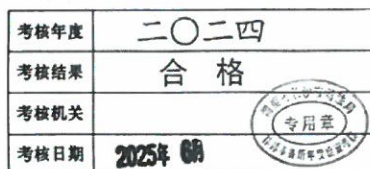 考核年度 二〇二四
考核结果 合格
考核机关
专用章
考核日期 2025年 6月